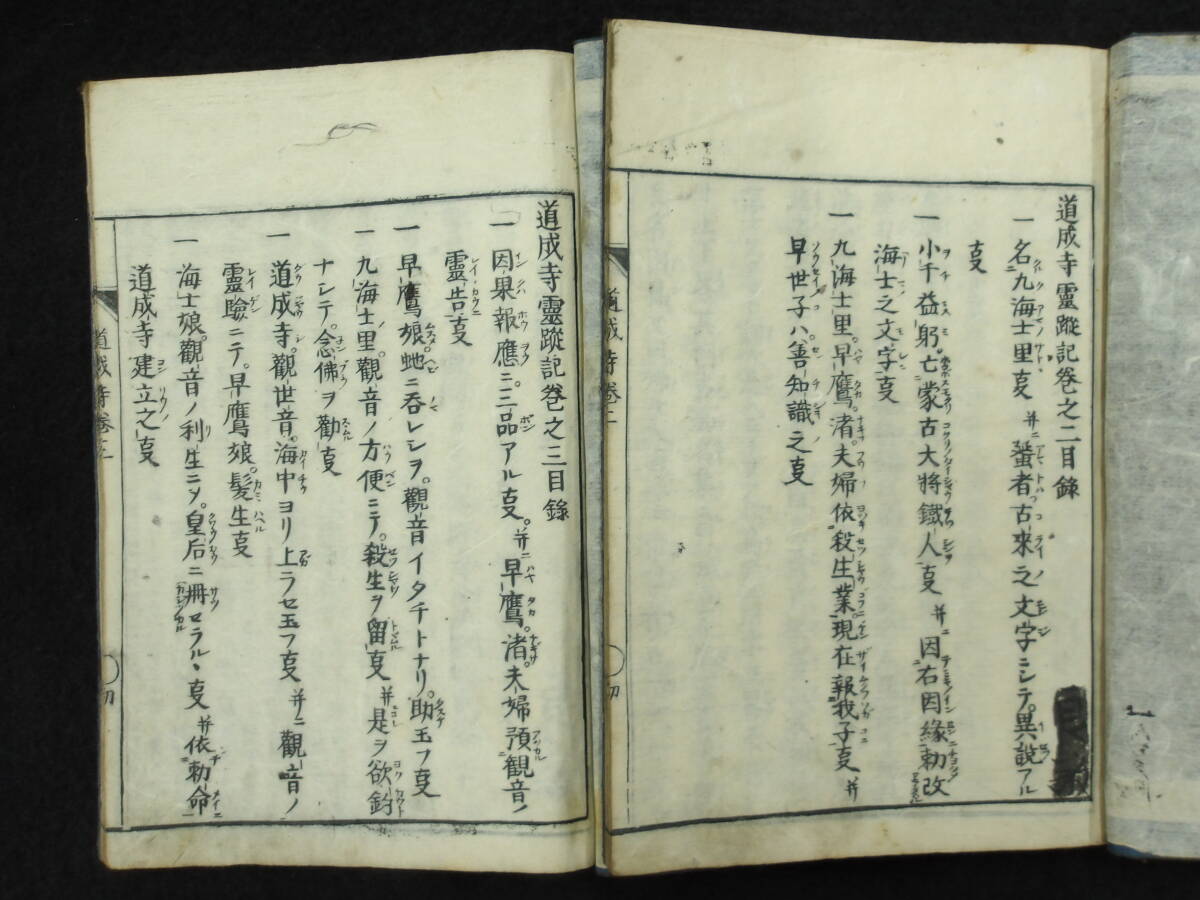 道成寺靈蹤記卷之二目錄
一 名九海士里㕝 并ニ 蜑者古來之文字ニシテ。異說アル
㕝
一 小千益躬。亡蒙古大將鐵人㕝 并ニ 因右因緣勅改
海士之文字㕝
一 九海士里。早鷹。渚。夫婦依殺生業現在報我子㕝 并
早世子ハ。善知識之㕝
道成寺靈蹤記卷之三目錄
一 因果報應ニ三品アル㕝。并ニ 早鷹。渚。夫婦預觀音ノ
靈告㕝
一 早鷹娘。虵ニ呑レシヲ。觀音イタチトナリ。助玉フ㕝
一 九海士里。觀音ノ方便ニテ。殺生ヲ留㕝 并 是ヲ欲鈎
ナシテ。念佛ヲ勸㕝
一 道成寺。觀世音。海中ヨリ上ラセ玉フ㕝 并ニ 觀音ノ
靈驗ニテ。早鷹娘。髮生㕝
一 海士娘。觀音ノ利生ニメ。皇后ニ冊セラルヽ㕝 并 依勅命
道成寺建立之㕝
道成寺卷二
道成寺卷三